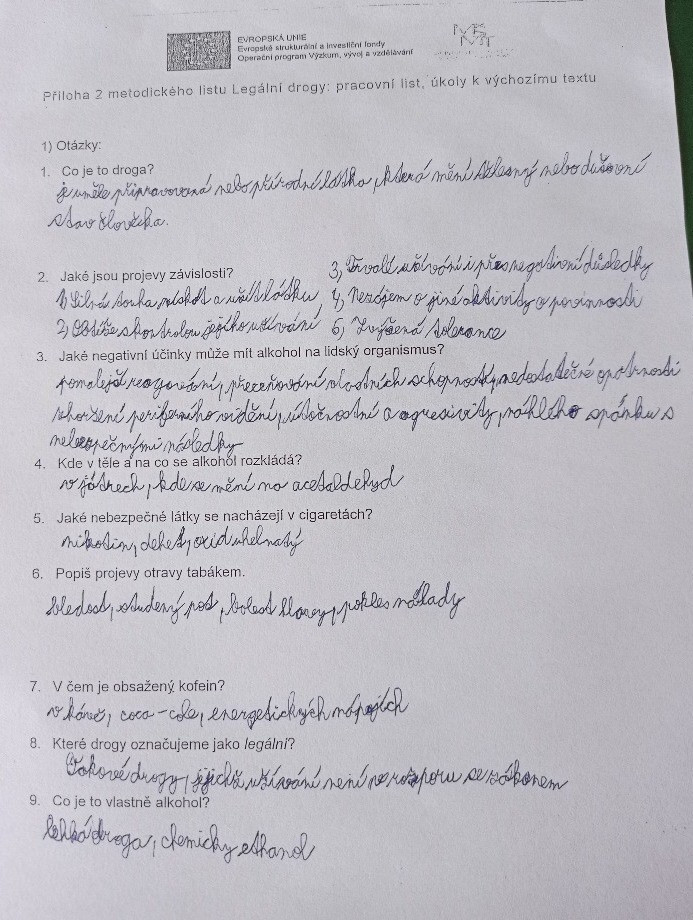 EVROPSKÁ UNIE
Evropské strukturální a investiční fondy
Operační program Výzkum, vývoj a vzdělávání
Příloha 2 metodického listu Legální drogy: pracovní list, úkoly k výchozímu textu
1) Otázky:
1. Co je to droga?
je uměle připravovaná nebo přírodní látka, která mění tělesný nebo duševní
stav člověka.
2. Jaké jsou projevy závislosti?
1) Silná touha získat a užít látku
2) Obtíže s kontrolou jejího užívání
3, Trvalé užívání i přes negativní důsledky
4, Nezájem o jiné aktivity a povinnosti
5, Zvýšená tolerance
3. Jaké negativní účinky může mít alkohol na lidský organismus?
pomalejší reagování, přeceňování vlastních schopností, nedostatečné opatrnosti
zhoršení periferního vidění, útočnostní a agresivity, náhlého spánku s
nebezpečnými následky
4. Kde v těle a na co se alkohol rozkládá?
v játrech, kde se mění na acetaldehyd
5. Jaké nebezpečné látky se nacházejí v cigaretách?
nikotin, dehet, oxid uhelnatý
6. Popiš projevy otravy tabákem.
bledost, studený pot, bolest hlavy, pokles nálady
7. V čem je obsažený kofein?
v kávě, coca-cole, energetických nápojích
8. Které drogy označujeme jako legální?
Takové drogy, jejichž užívání není v rozporu se zákonem
9. Co je to vlastně alkohol?
lehká droga, chemicky ethanol